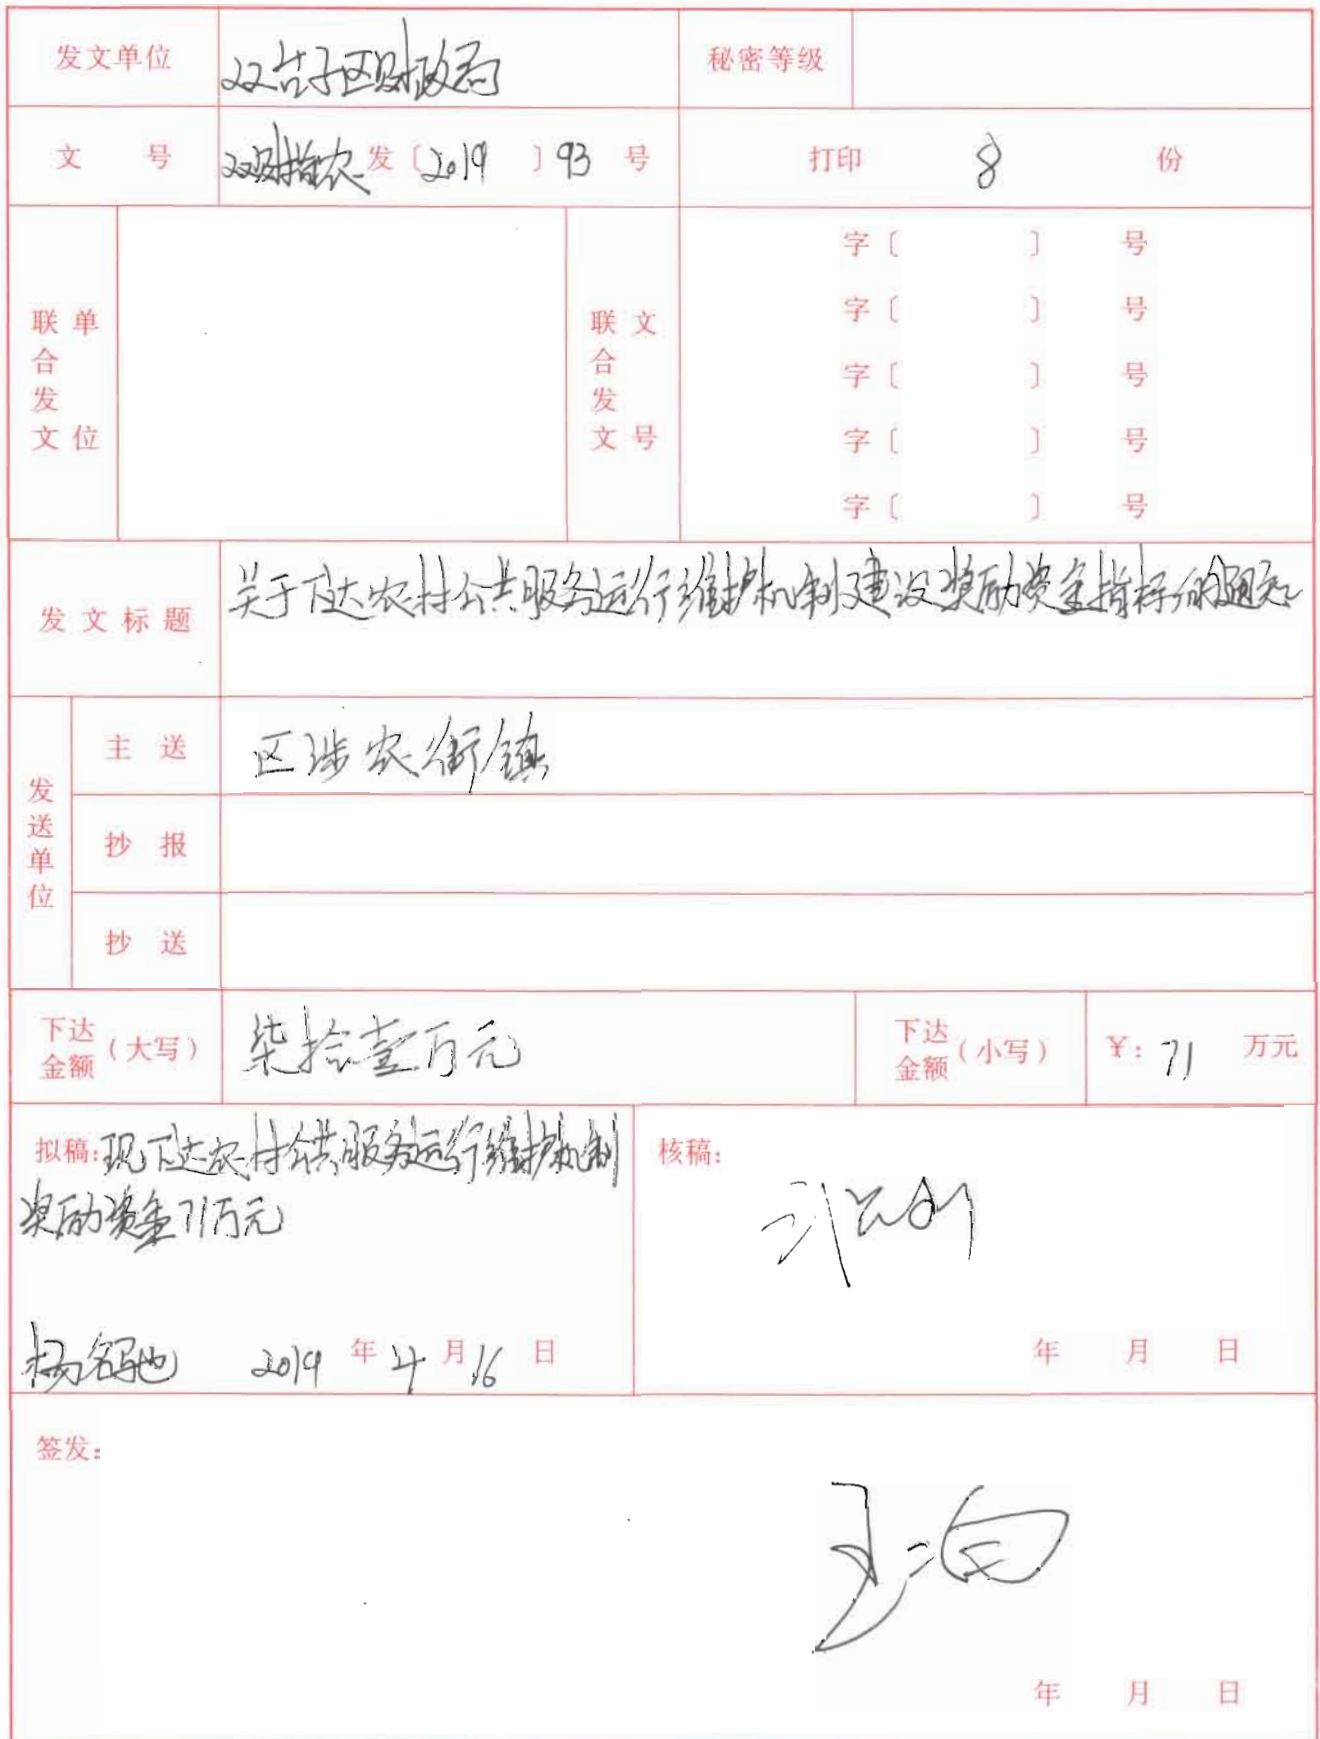 发文单位 双台子区财政局 秘密等级
文 号 双财指农 发〔2019〕93 号 打印 8 份
联合发文单位 联合发文文号
字〔 〕 号
字〔 〕 号
字〔 〕 号
字〔 〕 号
字〔 〕 号
发文标题 关于下达农村公共服务运行维护机制建设奖励资金指标的通知
发送单位
主 送 区涉农街镇
抄 报
抄 送
下达金额(大写) 柒拾壹万元 下达金额(小写) ¥:71 万元
拟稿:现下达农村公共服务运行维护机制 核稿:
奖励资金71万元
2019 年 4 月 16 日 年 月 日
签发:
年 月 日